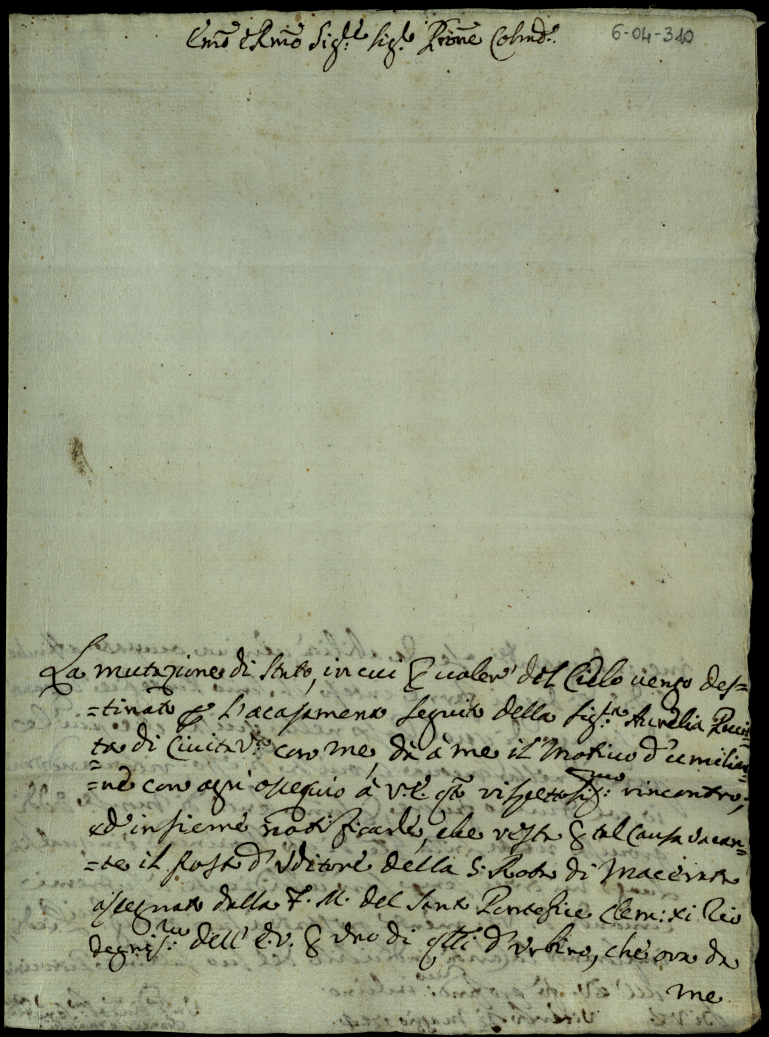 Em̃o e Rm̃o Sig.re Sig.re Pr̃one Colmo.
6-04-310
La mutazione di Stato, in cui p voler del Cielo vengo des=
=tinato p L'acasamento seguito della Sig.ra Aurelia
ta di Civita V.a con me, dà à me il Motivo d'umiliar=
=ne con ogni ossequio à V.E. qto rispettosiss.mo rincontro,
ed'insieme notificarle, che resta p tal Causa vacan=
=te il Posto d'Uditore della S. Rota di Macerata
assegnato dalla F. M. del Santo Pontefice Clem: XI Zio
degniss.mo dell' E.V. p uno di qlli d'Urbino, che ora da
me